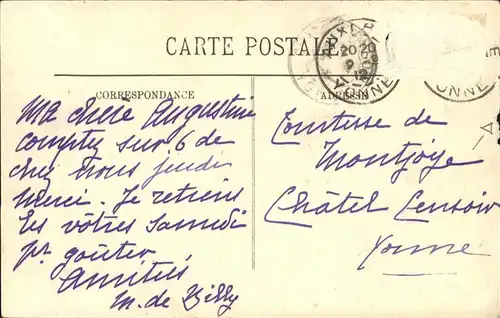 CARTE POSTALE
CORRESPONDANCE
ADRESSE
AUXERRE
20 20
9
12
YONNE
E
ONNE
Ma chère Augustine
comptez sur 6 de
chez nous jeudi
merci. Je retiens
les vôtres samedi
pr goûter
Amitiés
M. de Billy
Comtesse de
Montjoye
Châtel Censoir
Yonne